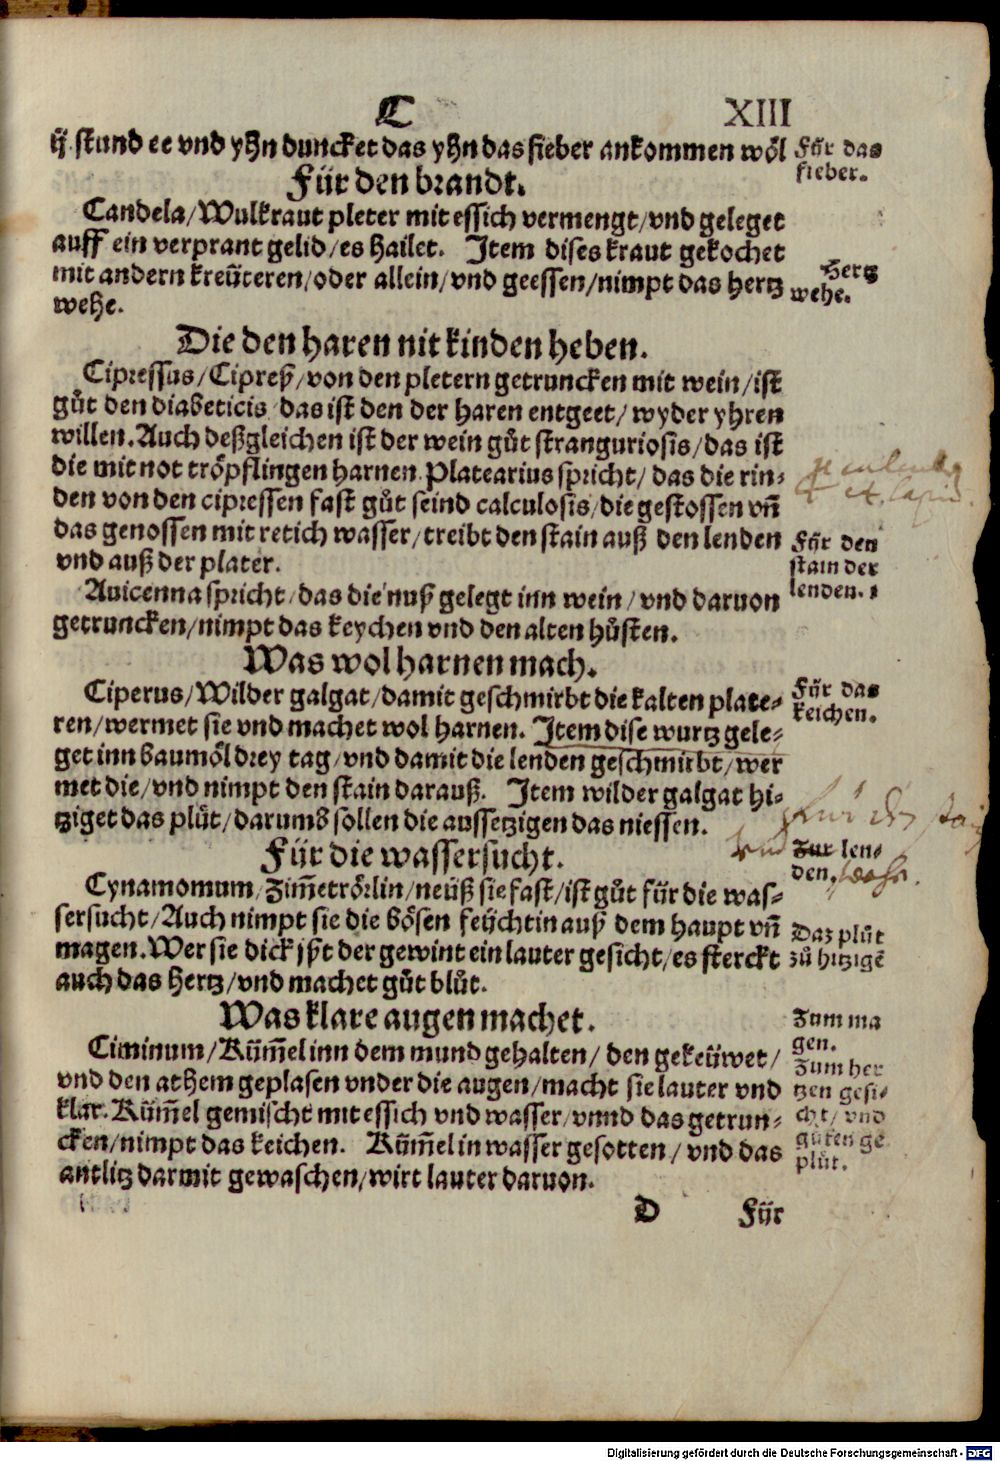 C XIII
ij stund ee vnd yhn duncket das yhn das fieber ankommen wöl
Für das
fieber.
Für den brandt.
Candela/Wulkraut pleter mit essich vermengt/vnd geleget
auff ein verprant gelid/es hailet. Item dises kraut gekochet
mit andern kreüteren/oder allein/vnd geessen/nimpt das hertz
wehe.
Hertz
wehe.
Die den haren nit kinden heben.
Cipressus/Cipreß/von den pletern getruncken mit wein/ist
gůt den diabeticis das ist den der haren entgeet/wyder yhren
willen. Auch deßgleichen ist der wein gůt stranguriosis/das ist
die mit not tröpflingen harnen. Platearius spricht/das die rin-
den von den cipressen fast gůt seind calculosis/die gestossen vñ
das genossen mit retich wasser/treibt den stain auß den lenden
vnd auß der plater.
Für den
stain der
lenden.
Auicenna spricht/das die nuß gelegt inn wein/vnd daruon
getruncken/nimpt das keychen vnd den alten hůsten.
Was wol harnen mach.
Ciperus/Wilder galgat/damit geschmirbt die kalten plate-
ren/wermet sie vnd machet wol harnen. Item dise wurtz gele-
get inn baumöl drey tag/vnd damit die lenden geschmirbt/wer
met die/vnd nimpt den stain darauß. Item wilder galgat hi-
tziget das plůt/darumb sollen die aussetzigen das niessen.
Für das
keichen.
Für den stain
vnd Zur len-
den. wehe.
Für die wassersucht.
Cynamomum/Zim̃etrörlin/neüß sie fast/ist gůt für die was-
sersucht/Auch nimpt sie die bösen feüchtin auß dem haupt vñ
magen. Wer sie dick ißt der gewint ein lauter gesicht/es sterckt
auch das hertz/vnd machet gůt blůt.
Daz plůt
zů hitzigẽ
Was klare augen machet.
Ciminum/Küm̃el inn dem mund gehalten/den gekeüwet/
vnd den athem geplasen vnder die augen/macht sie lauter vnd
klar. Küm̃el gemischt mit essich vnd wasser/vnnd das getrun-
cken/nimpt das keichen. Küm̃el in wasser gesotten/vnd das
antlitz darmit gewaschen/wirt lauter daruon.
Zum ma
gen.
Zum her
tzen gesi-
cht/vnd
gůten ge
plůt.
D Für
Digitalisierung gefördert durch die Deutsche Forschungsgemeinschaft - DFG